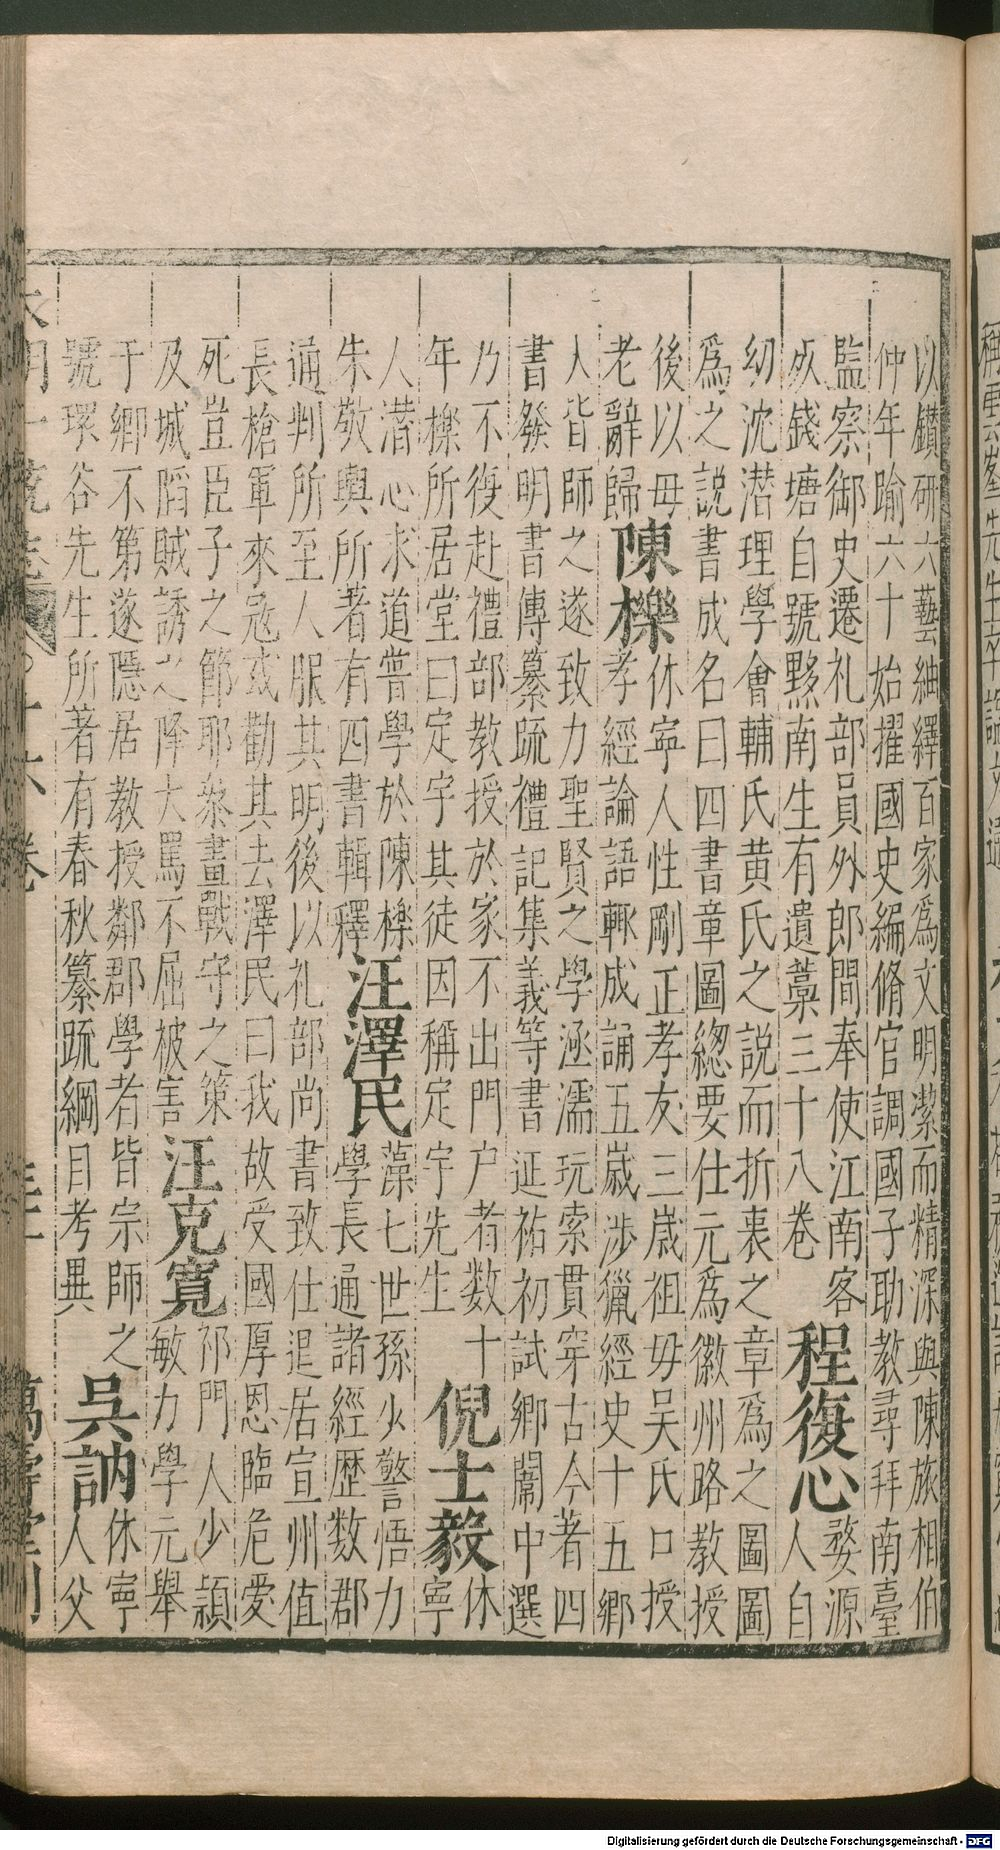 以鑽研六藝紬繹百家爲文明潔而精深與陳旅相伯
仲年踰六十始擢國史編脩官調國子助教尋拜南臺
監察御史遷礼部員外郎間奉使江南客
㱕錢塘自號黟南生有遺藁三十八卷
程復心
婺源
人自
幼沈潜理學會輔氏黄氏之說而折衷之章爲之圖圖
爲之說書成名曰四書章圖總要仕元爲徽州路教授
後以母
老辭歸
陳櫟
休寧人性剛正孝友三歲祖毋吴氏口授
孝經論語輒成誦五歲涉獵經史十五鄉
人皆師之遂致力聖賢之學涵濡玩索貫穿古今著四
書發明書傳纂疏禮記集義等書延祐初試鄉闈中選
乃不復赴禮部教授於家不出門户者数十
年櫟所居堂曰定宇其徒因稱定宇先生
倪士毅
休
寧
人潜心求道嘗學於陳櫟
朱敬輿所著有四書輯釋
汪澤民
藻七世孫少警悟力
學長通諸經歴数郡
通判所至人服其明後以礼部尚書致仕退居宣州值
長槍軍來冦或勸其去澤民曰我故受國厚恩臨危愛
死豈臣子之節耶衆畫戰守之策
及城䧟賊誘之降大罵不屈被害
汪克寬
祁門人少頴
敏力學元舉
于鄉不第遂隱居教授鄰郡學者皆宗師之
號環谷先生所著有春秋纂疏綱目考異
吳訥
休寧
人父
萬壽堂刊
Digitalisierung gefördert durch die Deutsche Forschungsgemeinschaft - DFG